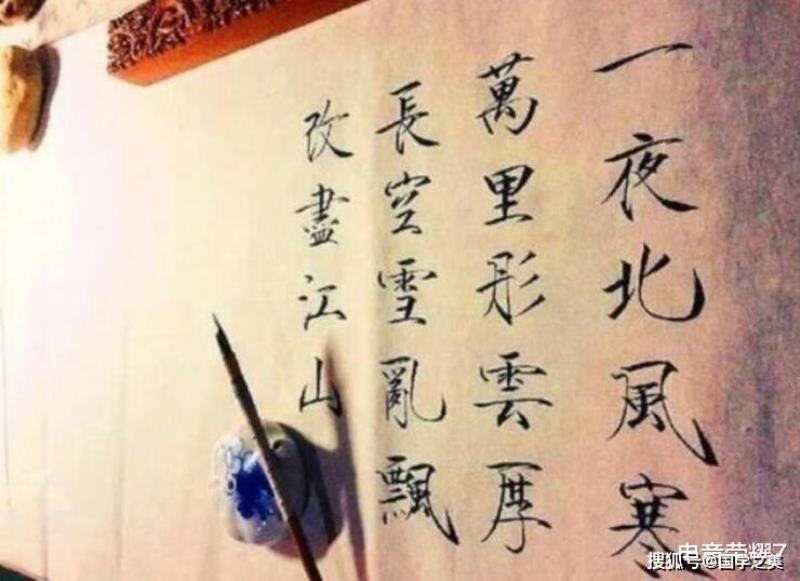 一夜北風寒
萬里彤雲厚
長空雪亂飄
改盡江山
搜狐号@国学之美
电音荣耀7